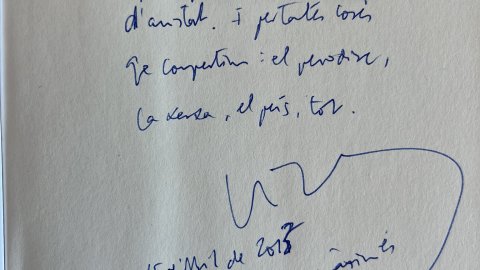 d'amistat. I per tantes coses
que compartim: el periodisme,
la xarxa, el país, tot.
d'abril de